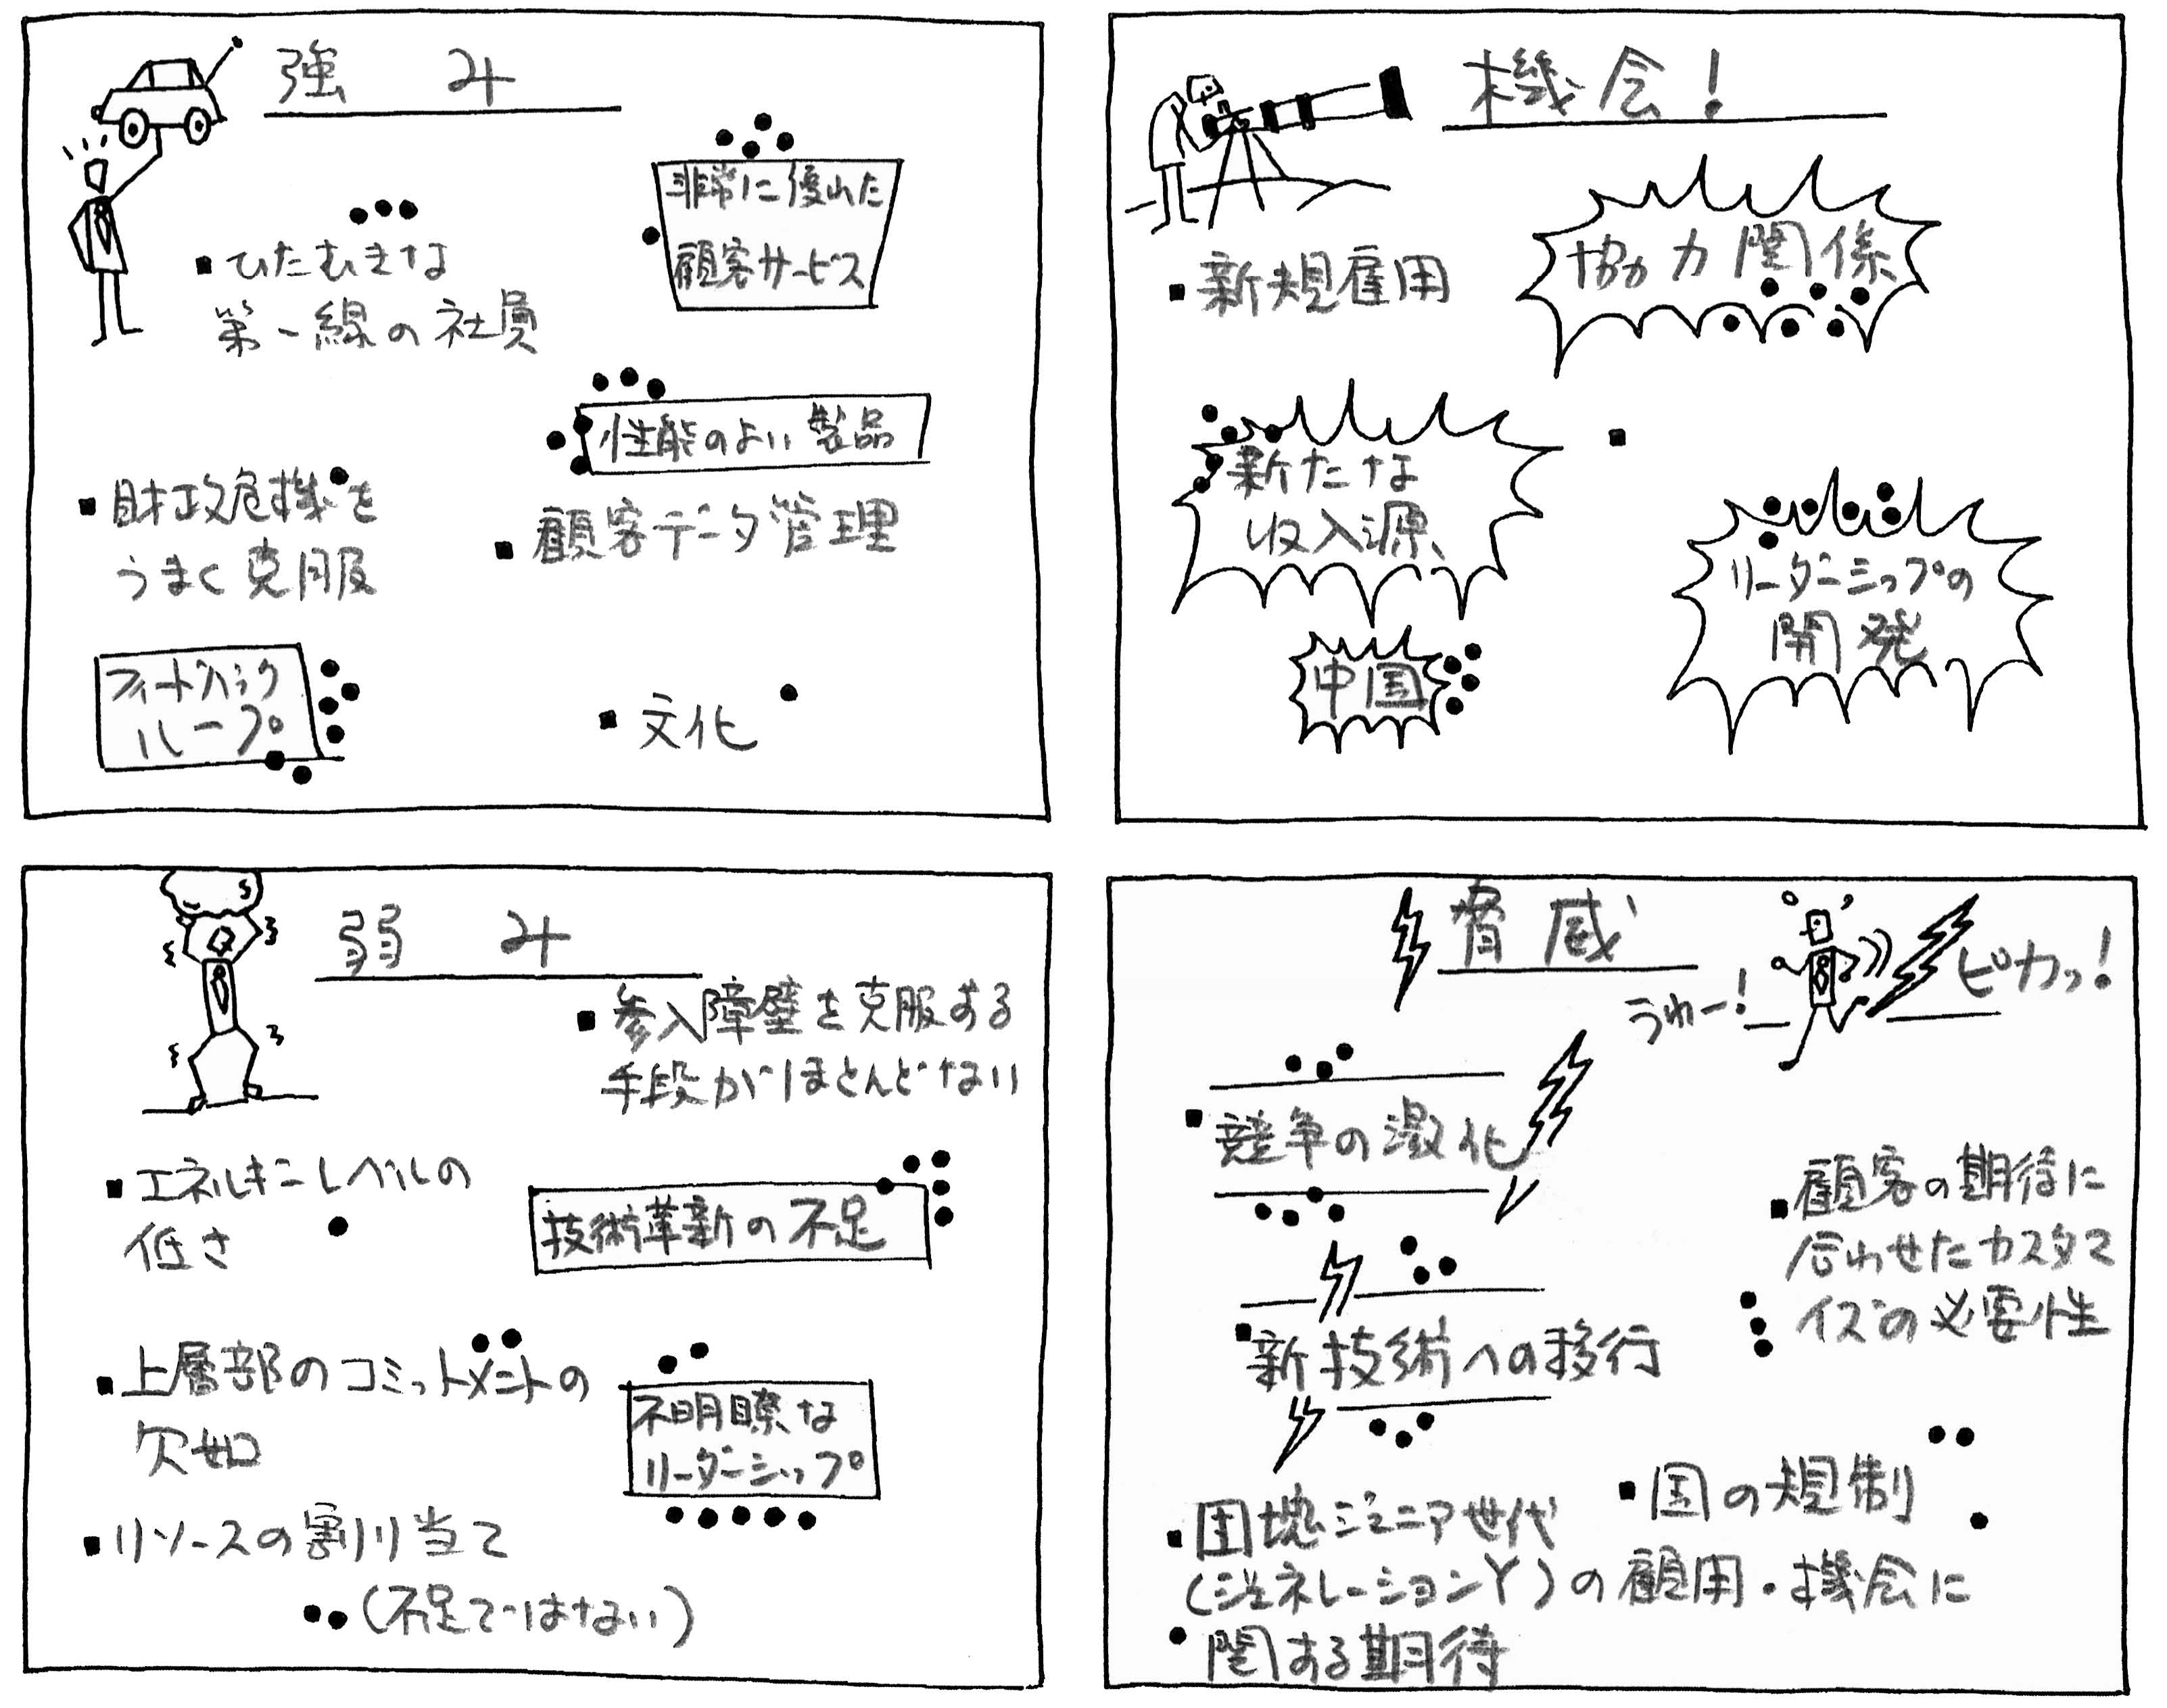 強み
非常に優れた
顧客サービス
ひたむきな
第一線の社員
性能のよい製品
財政危機を
うまく克服
顧客データ管理
フィードバック
ループ
文化
機会!
新規雇用
協力関係
新たな
収入源
リーダーシップの
開発
中国
弱み
参入障壁を克服する
手段がほとんどない
エネルギーレベルの
低さ
技術革新の不足
上層部のコミットメントの
欠如
不明瞭な
リーダーシップ
リソースの割り当て
(不足ではない)
脅威
うわー!
ピカッ!
競争の激化
顧客の期待に
合わせたカスタマ
イズの必要性
新技術への移行
国の規制
団塊ジュニア世代
(ジェネレーションY)の顧用・機会に
関する期待